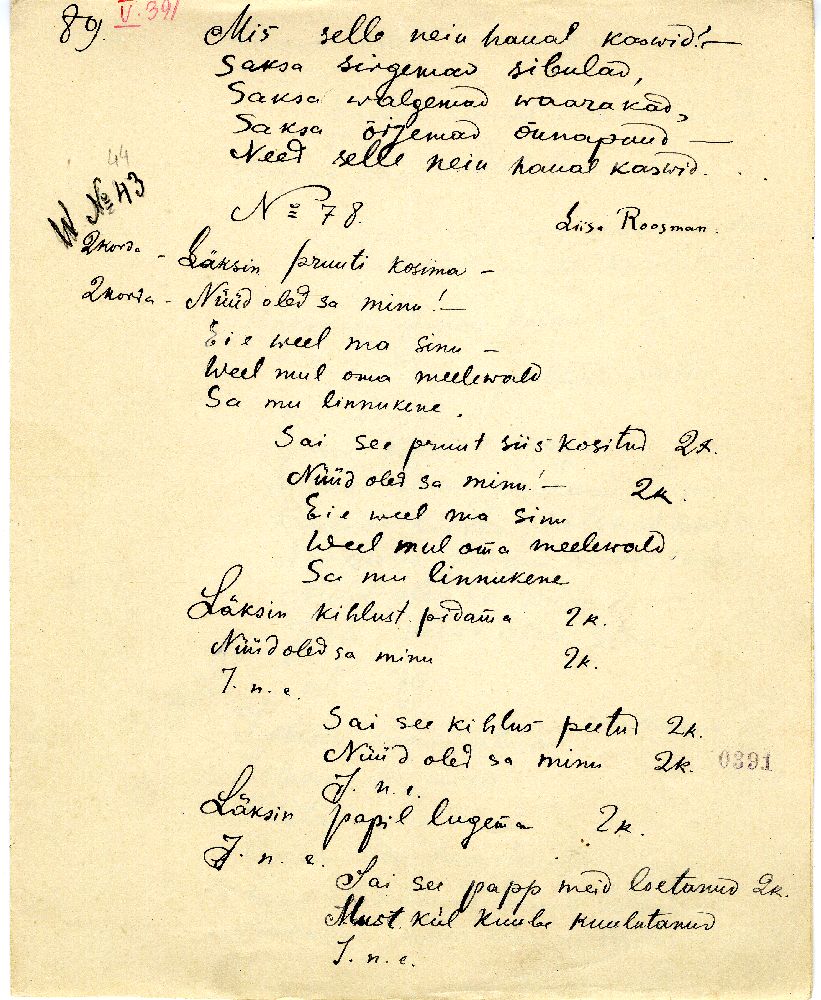 89.
V. 391
Mis selle neiu haual kaswid? —
Saksa sirgemad sibulad,
Saksa walgemad waarakad,
Saksa õigemad õunapuud —
Need selle neiu haual kaswid.
44
W № 43
№ 78.
Liisa Roosman.
2 korda - Läksin pruuti kosima —
2 korda - Nüüd oled sa minu! —
Ei e weel ma sinu —
Weel mul oma meelewald
Sa mu linnukene.
Sai see pruut siis kositud 2k.
Nüüd oled sa minu! — 2k.
Ei e weel ma sinu
Weel mul oma meelewald
Sa mu linnukene
Läksin kihlust pidama 2k.
Nüüd oled sa minu 2k.
J. n. e.
Sai see kihlus peetud 2k.
Nüüd oled sa minu 2k.
0391
J. n. e.
Läksin papil lugema 2k.
J. n. e.
Sai see papp meid loetanud 2k.
Must kül kuube kuulutanud
J. n. e.